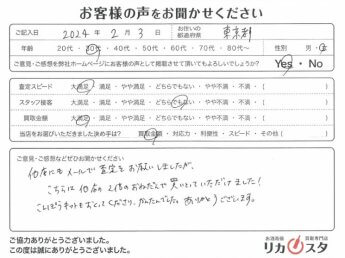 お客様の声をお聞かせください
ご記入日 2024年 2月 3日 お住いの都道府県 東京都
年齢 20代・30代・40代・50代・60代・70代・80代〜 性別 男・女
ご意見・ご感想を弊社ホームページにお客様の声として掲載させて頂いてもよろしいでしょうか? Yes・No
査定スピード 大満足・満足・やや満足・どちらでもない・やや不満・不満・( )
スタッフ接客 大満足・満足・やや満足・どちらでもない・やや不満・不満・( )
買取金額 大満足・満足・やや満足・どちらでもない・やや不満・不満・( )
当店をお選びいただきました決め手は? 買取金額・対応力・利便性・スピード・その他( )
ご意見・ご感想などぜひお聞かせください
他店にもメールで査定をお願いしましたが、
こちらは他店の2倍のおねだんで買いとっていただけました!
こんぽうキットもおくってくださり、かんたんでした。ありがとうございます。
ご協力ありがとうございました。
この度は誠にありがとうございました。
お酒高価買取専門店
リカスタ